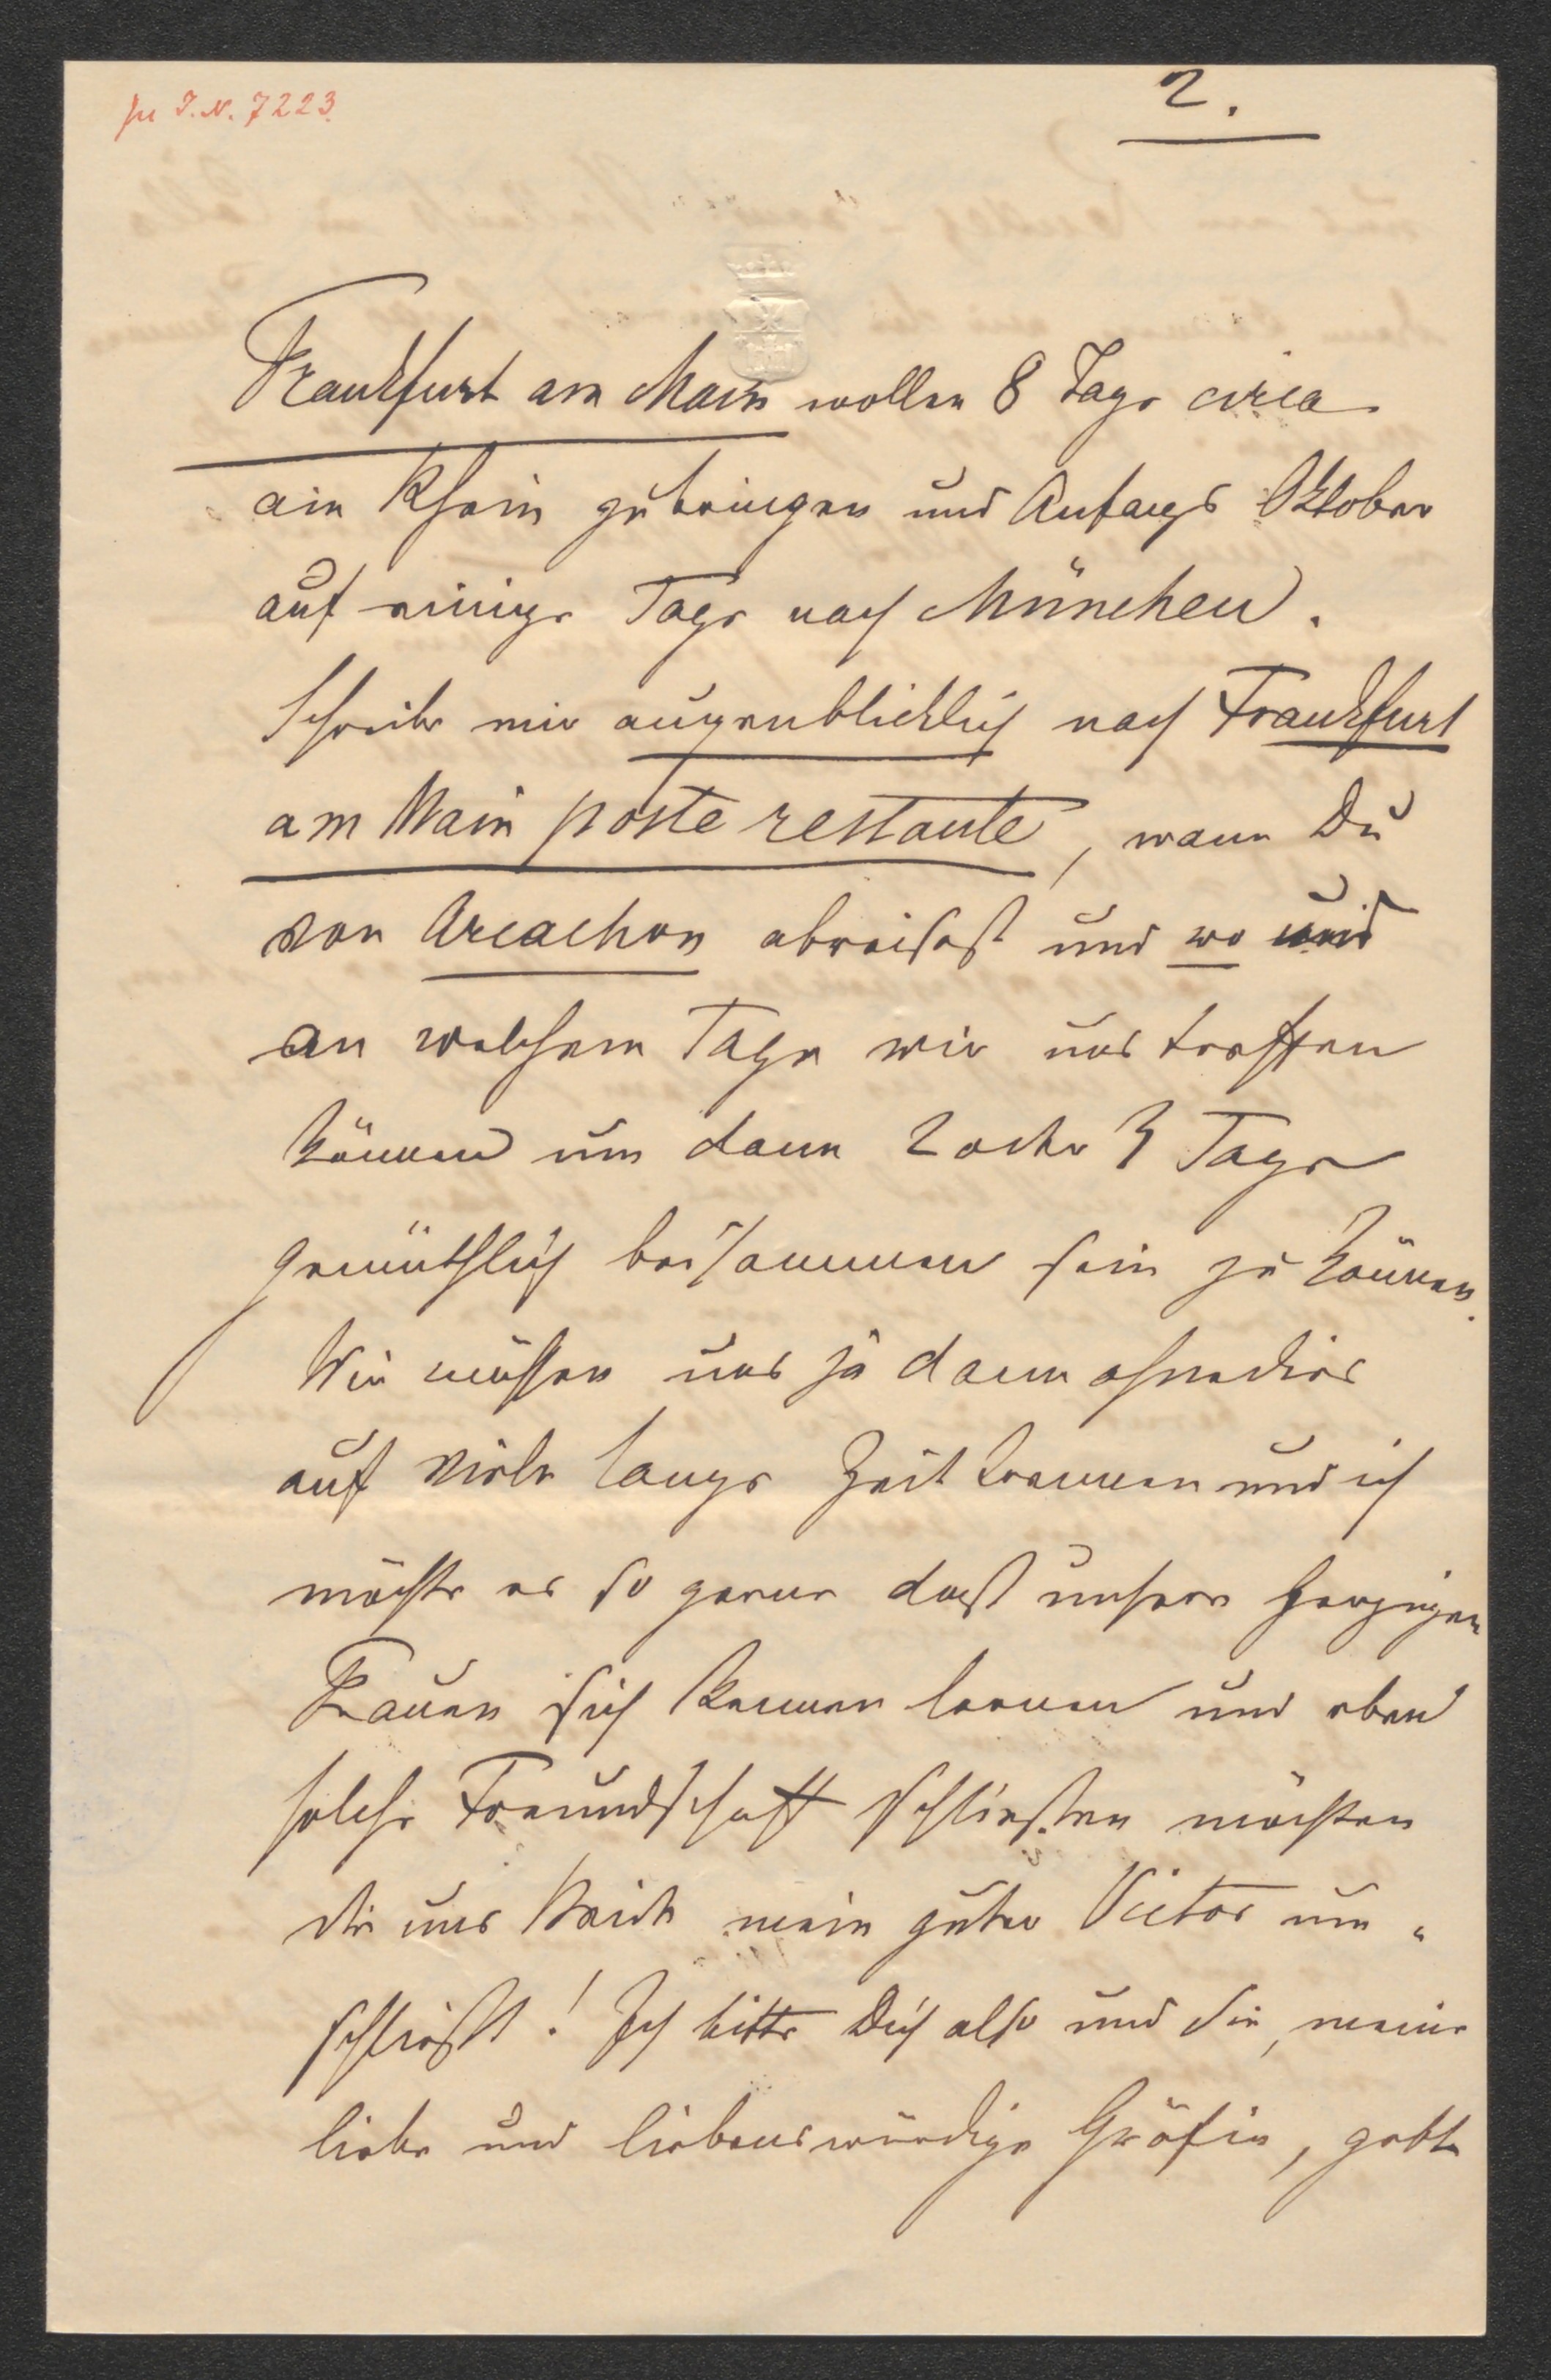 zu I.N. 7223.
2.
Frankfurt am Main wollen 8 Tage circa
am Rhein zubringen und Anfangs Oktober
auf einige Tage nach München.
Schreibe mir augenblicklich nach Frankfurt
am Main poste restante, wann Du
von Arcachon abreisest und wo und
an welchem Tage wir uns treffen
können um dann 2 oder 3 Tage
gemüthlich beisammen sein zu können.
Wir müssen uns ja dann ohnedies
auf viele lange Zeit trennen und ich
möchte es so gerne daß unsere herzigen
Frauen sich kennen lernen und eben
solche Freundschaft schließen möchten
die uns Beide mein guter Victor um„
schließt! Ich bitte Dich also und Sie, meine
liebe und liebenswürdige Gräfin, gebt